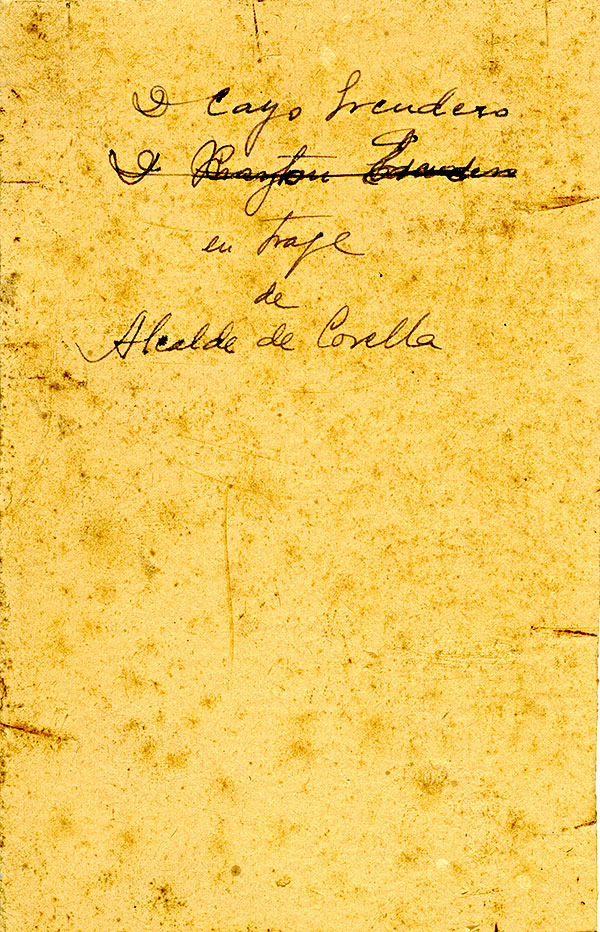 D Cayo Escudero
D Escudero
en traje
de
Alcalde de Corella